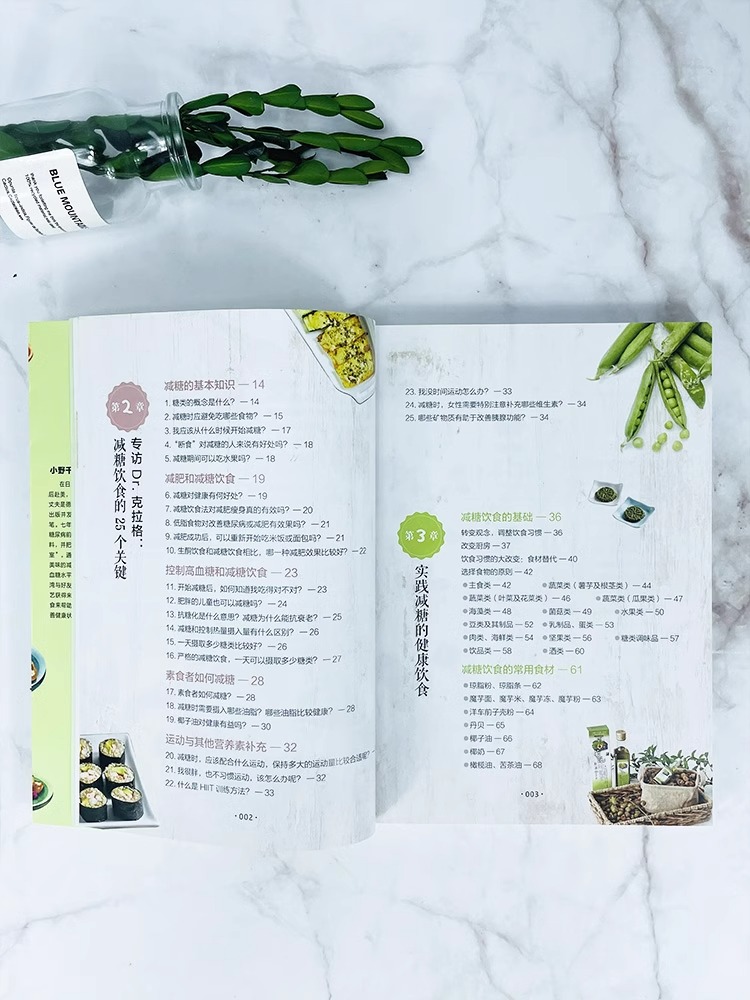 BLUE MOUNTAI
小野千
第2章
专访Dr.克拉格：
减糖饮食的25个关键
减糖的基本知识 — 14
1. 糖类的概念是什么？ — 14
2. 减糖时应避免吃哪些食物？ — 15
3. 我应该从什么时候开始减糖？ — 17
4. “断食”对减糖的人来说有好处吗？ — 18
5. 减糖期间可以吃水果吗？ — 18
减肥和减糖饮食 — 19
6. 减糖对健康有何好处？ — 19
7. 减糖饮食法对减肥瘦身真的有效吗？ — 20
8. 低脂食物对改善糖尿病或减肥有效果吗？ — 21
9. 减肥成功后，可以重新开始吃米饭或面包吗？ — 21
10. 生酮饮食和减糖饮食相比，哪一种减肥效果比较好？ — 22
控制高血糖和减糖饮食 — 23
11. 开始减糖后，如何知道我吃得对不对？ — 23
12. 肥胖的儿童也可以减糖吗？ — 24
13. 抗糖化是什么意思？减糖为什么能抗衰老？ — 25
14. 减糖和控制热量摄入量有什么区别？ — 26
15. 一天摄取多少糖类比较好？ — 26
16. 严格的减糖饮食，一天可以摄取多少糖类？ — 27
素食者如何减糖 — 28
17. 素食者如何减糖？ — 28
18. 减糖时需要摄入哪些油脂？哪些油脂比较健康？ — 28
19. 椰子油对健康有益吗？ — 30
运动与其他营养素补充 — 32
20. 减糖时，应该配合什么运动，保持多大的运动量比较合适呢？
21. 我很胖，也不习惯运动，该怎么办呢？ — 32
22. 什么是HIIT训练方法？ — 33
·002·
23. 我没时间运动怎么办？ — 33
24. 减糖时，女性需要特别注意补充哪些维生素？ — 34
25. 哪些矿物质有助于改善胰腺功能？ — 34
第3章
实践减糖的健康饮食
减糖饮食的基础 — 36
转变观念，调整饮食习惯 — 36
改变厨房 — 37
饮食习惯的大改变：食材替代 — 40
选择食物的原则 — 42
●主食类 — 42 ●蔬菜类（薯芋及根茎类） — 44
●蔬菜类（叶菜及花菜类） — 46 ●蔬菜类（瓜果类） — 47
●海藻类 — 48 ●菌菇类 — 49 ●水果类 — 50
●豆类及其制品 — 52 ●乳制品、蛋类 — 53
●肉类、海鲜类 — 54 ●坚果类 — 56 ●糖类调味品 — 57
●饮品类 — 58 ●酒类 — 60
减糖饮食的常用食材 — 61
●琼脂粉、琼脂条 — 62
●魔芋面、魔芋米、魔芋冻、魔芋粉 — 63
●洋车前子壳粉 — 64
●丹贝 — 65
●椰子油 — 66
●椰奶 — 67
●橄榄油、苦茶油 — 68
·003·